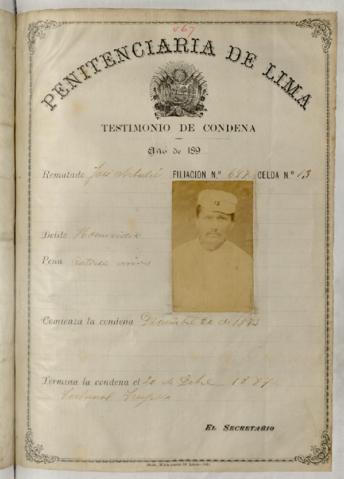 567
PENITENCIARIA DE LIMA
TESTIMONIO DE CONDENA
Año de 189
Rematado José FILIACION N.º 687 CELDA N.º 13
Delito Homicidio
Pena catorce años
Comienza la condena Diciembre 20 de 1873
Termina la condena el 20 de Dbre 1887
EL SECRETARIO